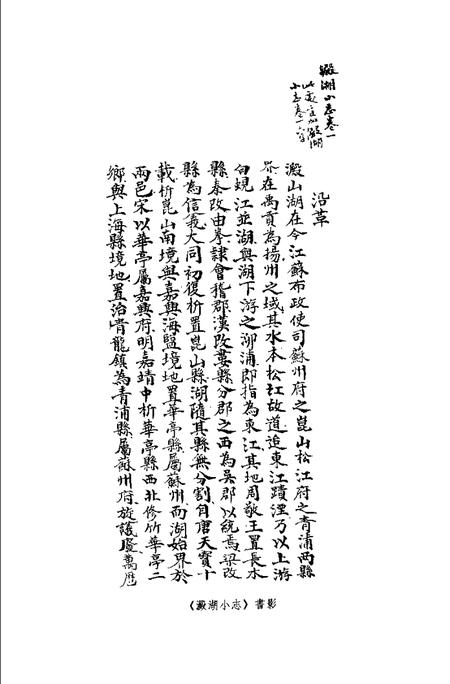 澱湖小志卷一
此處宜加澱湖
小志卷一字
沿革
澱山湖在今江蘇布政使司蘇州府之崑山松江府之青浦兩縣
界在禹貢為揚州之域其水本松江故道迨東江蹟湮乃以上游
白蜆江並湖與湖下游之泖浦即指為東江其地周敬王置長水
縣秦改由拳隸會稽郡漢改婁縣分郡之西為吳郡以統焉梁改
縣為信義大同初復析置崑山縣湖隨其縣無分割自唐天寶十
載析崑山南境與嘉興海鹽境地置華亭縣屬蘇州而湖始界於
兩邑宋以華亭屬嘉興府明嘉靖中析華亭縣西北修竹華亭二
鄉與上海縣境地置治青龍鎮為青浦縣屬蘇州府旋該廢萬歷
《澱湖小志》書影